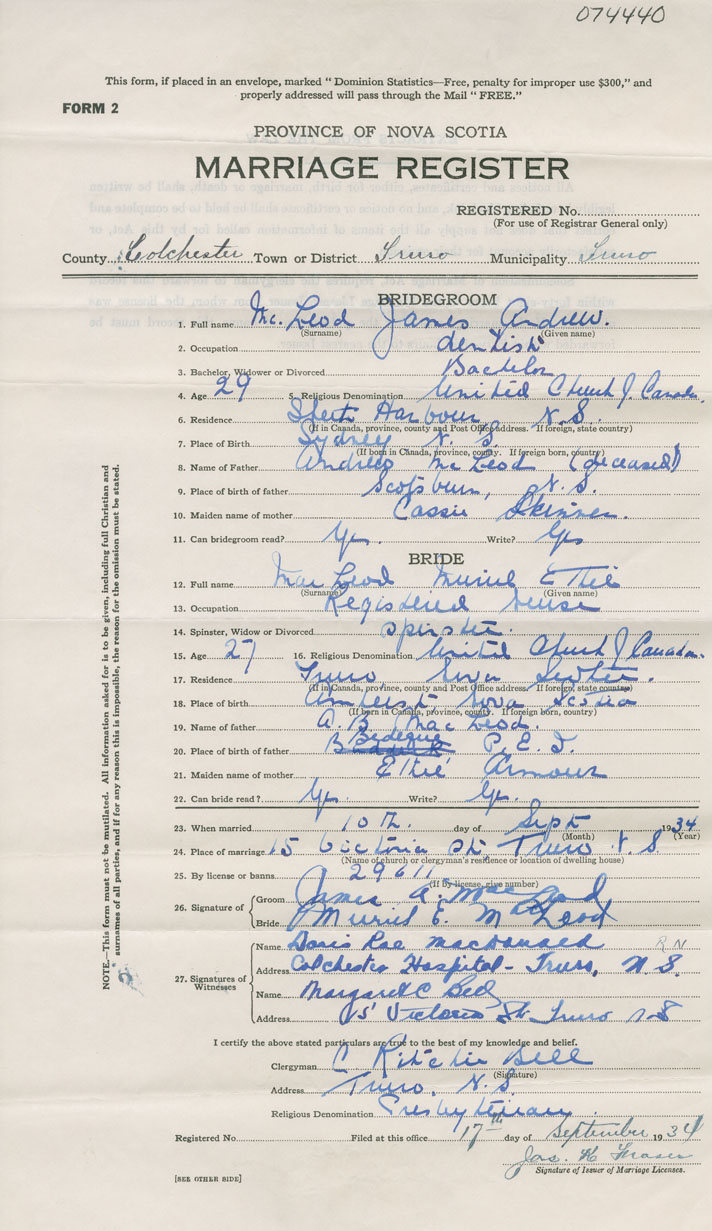 074440
This form, if placed in an envelope, marked "Dominion Statistics—Free, penalty for improper use $300," and
properly addressed will pass through the Mail "FREE."
FORM 2
PROVINCE OF NOVA SCOTIA
MARRIAGE REGISTER
REGISTERED No.
(For use of Registrar General only)
County Colchester Town or District Truro Municipality Truro
BRIDEGROOM
1. Full name Mc. Leod James Andrew.
(Surname) (Given name)
2. Occupation dentist
3. Bachelor, Widower or Divorced Bachelor
4. Age 29 5. Religious Denomination United Church of Canada.
6. Residence Sheet Harbour N.S.
(If in Canada, province, county and Post Office address. If foreign, state country)
7. Place of Birth Sydney N. S
(If born in Canada, province, county. If foreign born, country)
8. Name of Father Andrew McLeod (deceased)
9. Place of birth of father Scotsburn, N.S.
10. Maiden name of mother Cassie Skinner.
11. Can bridegroom read? Yes. Write? Yes
BRIDE
12. Full name MacLeod Muriel Ettie
(Surname) (Given name)
13. Occupation Registered nurse
14. Spinster, Widow or Divorced spinster.
15. Age 27 16. Religious Denomination United Church of Canada.
17. Residence Truro Nova Scotia.
(If in Canada, province, county and Post Office address. If foreign, state country)
18. Place of birth Amherst Nova Scotia
(If born in Canada, province, county. If foreign born, country)
19. Name of father A. B. MacLeod.
20. Place of birth of father Bedeque P. E. I.
21. Maiden name of mother Ettie Armour
22. Can bride read? Yes. Write? Yes.
23. When married 10th. day of Sept 1934
(Month) (Year)
24. Place of marriage 15 Victoria St Truro N. S
(Name of church or clergyman's residence or location of dwelling house)
25. By license or banns 29611
(If by license, give number)
26. Signature of Groom James A. MacLeod
Bride Muriel E. MacLeod
27. Signatures of Witnesses
Name Doris Rae MacDonald RN
Address Colchester Hospital - Truro, N.S.
Name Margaret C Bell
Address 15 Victoria St. Truro NS
I certify the above stated particulars are true to the best of my knowledge and belief.
Clergyman C Ritchie Bell
(Signature)
Address Truro, N.S.
Religious Denomination Presbyterian.
Registered No. Filed at this office 17th day of September 1934
Jas. K Fraser
Signature of Issuer of Marriage Licenses.
[SEE OTHER SIDE]
NOTE.—This form must not be mutilated. All information asked for is to be given, including full Christian and
surnames of all parties, and if for any reason this is impossible, the reason for the omission must be stated.